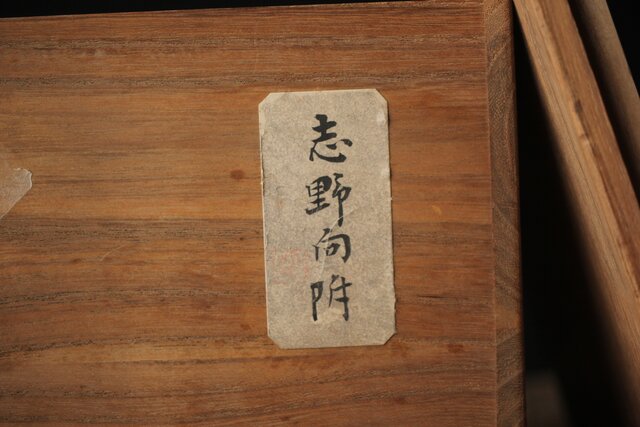 志野向附